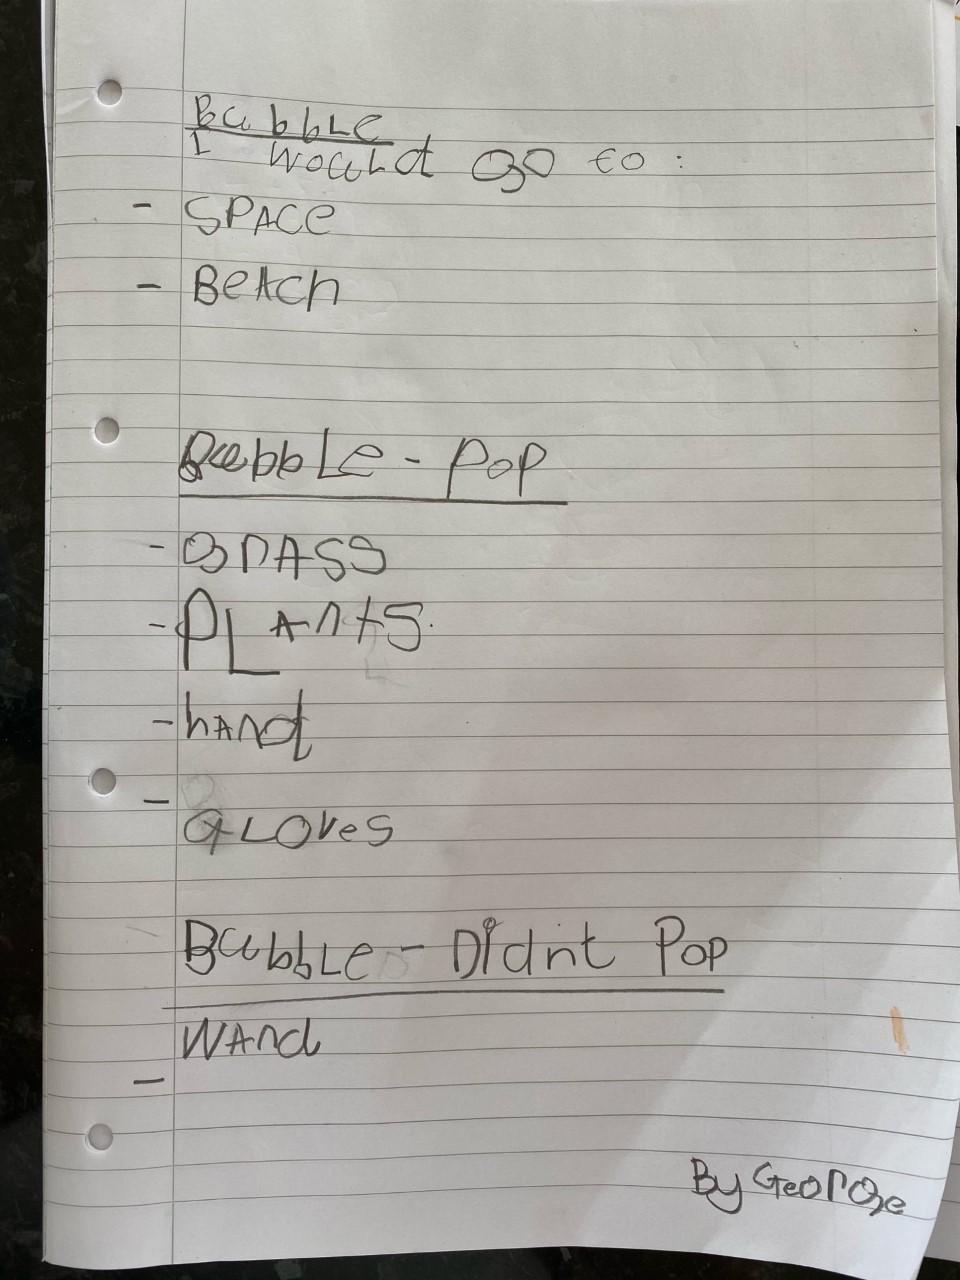 BubbLe
I WouLd go to:
- SPACe
- BeAch
BubbLe - Pop
- grASS
- PLAntS.
- hAnd
- GLOVeS
BubbLe - Didnt Pop
- WAnd
By GeOrge